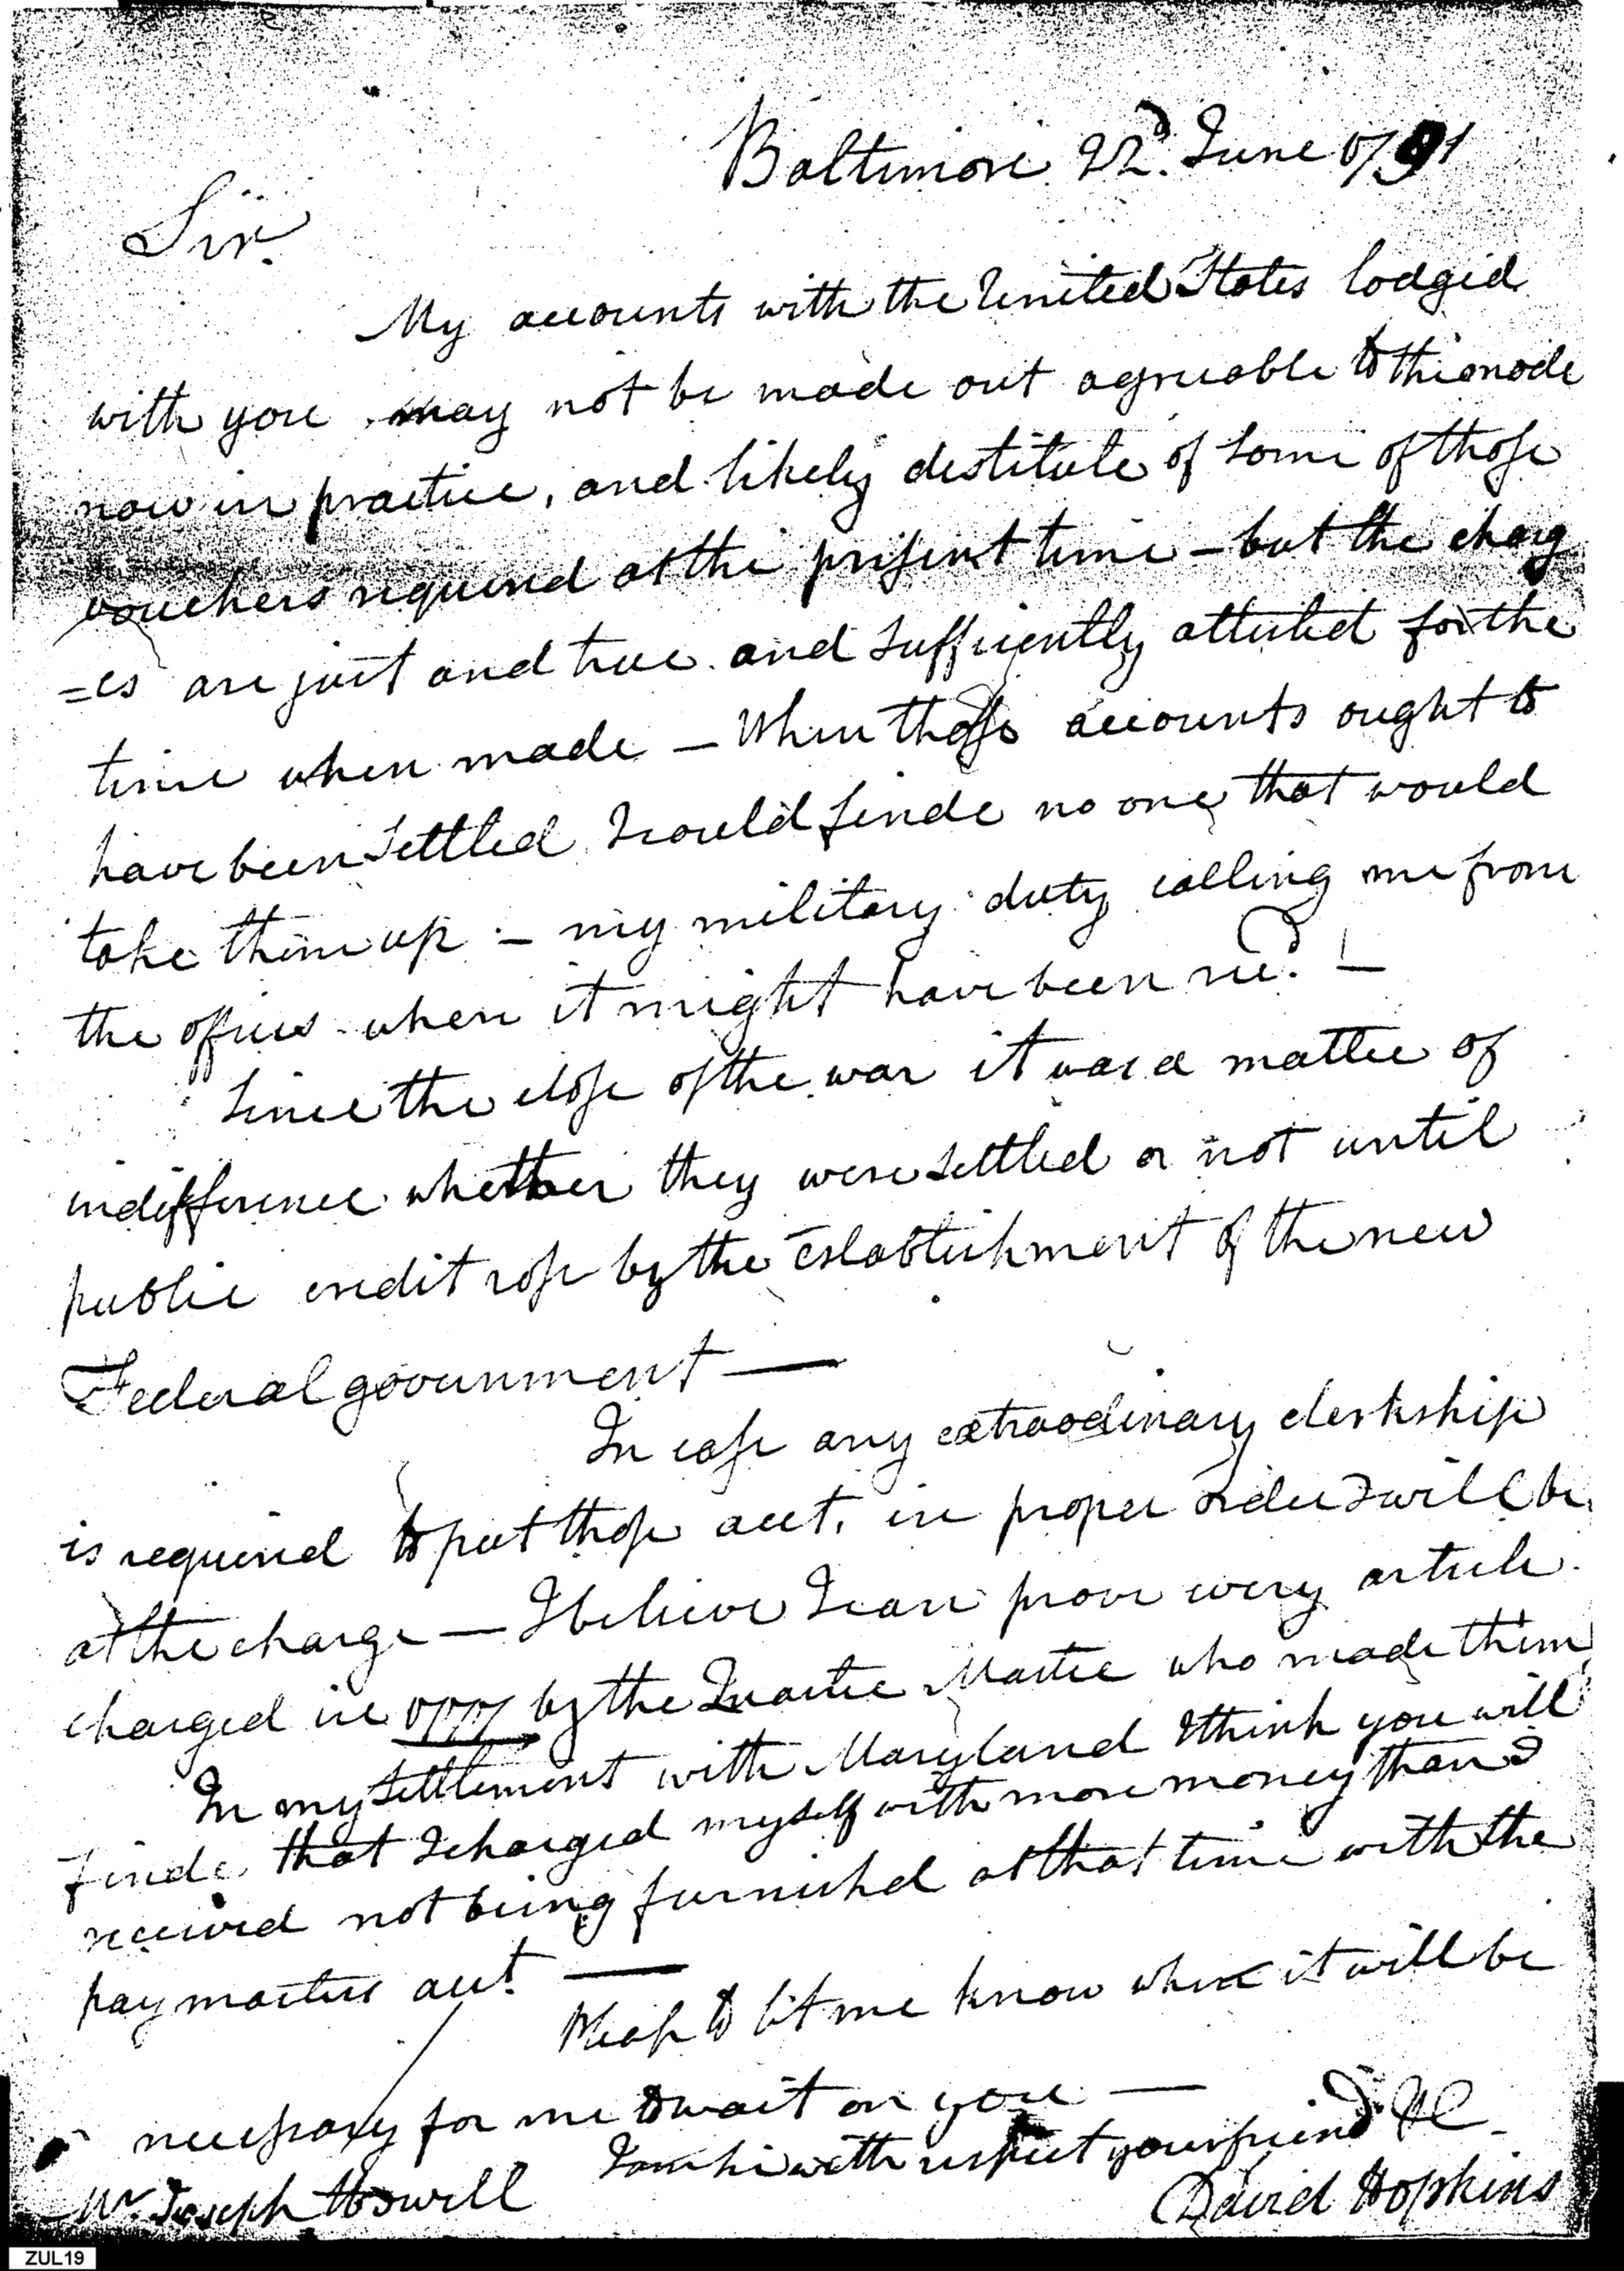 Baltimore 22d. June 1791
Sir.
My accounts with the United States lodged
with you may not be made out agreeable to the mode
now in practice, and likely destitute of some of those
vouchers required at the present time – but the charg
=es are just and true and sufficiently attested for the
time when made – When those accounts ought to
have been settled I could finde no one that would
take them up – my military duty calling me from
the offices when it might have been
Since the close of the war it was a matter of
indifference whether they were settled or not until
public credit rose by the establishment of the new
Federal government —
In case any extraodinary clerkship
is required to put those acct. in proper order I will be
at the charge — I believe I can prove every article
charged in by the Quarter Master who made them
In my settlement with Maryland I think you will
finde that I charged myself with more money than I
received not being furnished at that time with the
paymasters acct. —
Please to let me know when it will be
necessary for me to wait on you —
I am with respect your friend &C
Mr. Joseph Howell
David Hopkins
ZUL19